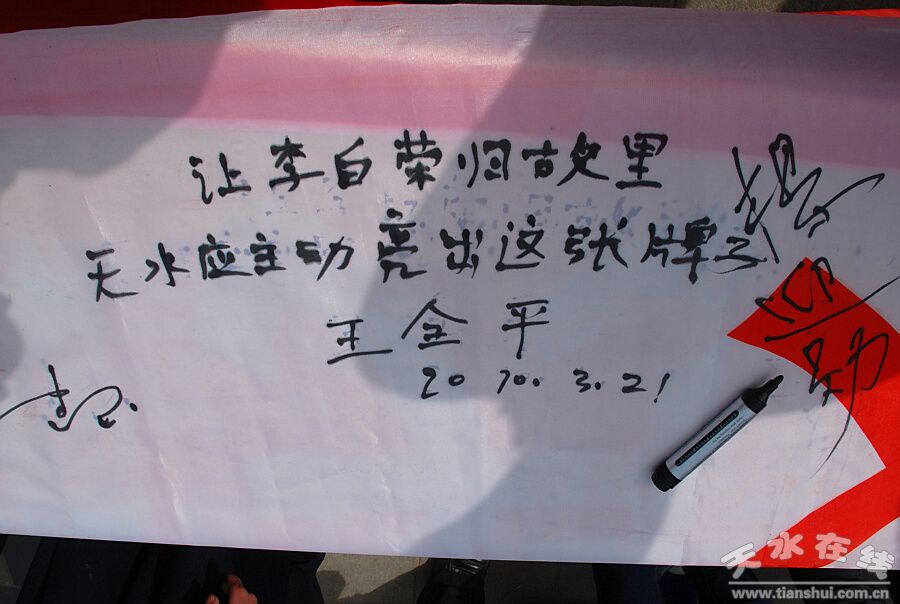 让李白荣归故里
天水应主动亮出这张牌
王全平
2010.3.21
天水在线
www.tianshui.com.cn